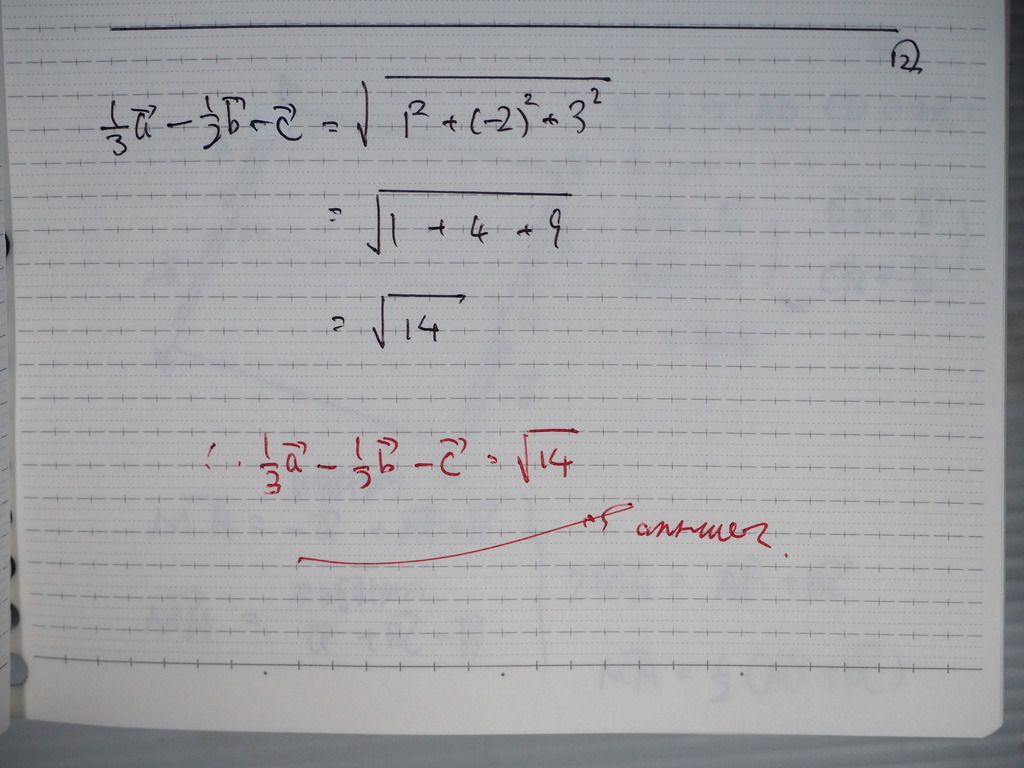 12
1/3 a⃗ − 1/3 b⃗ − c⃗ = √(1² + (-2)² + 3²)
= √(1 + 4 + 9)
= √14
∴ 1/3 a⃗ − 1/3 b⃗ − c⃗ = √14
answer.